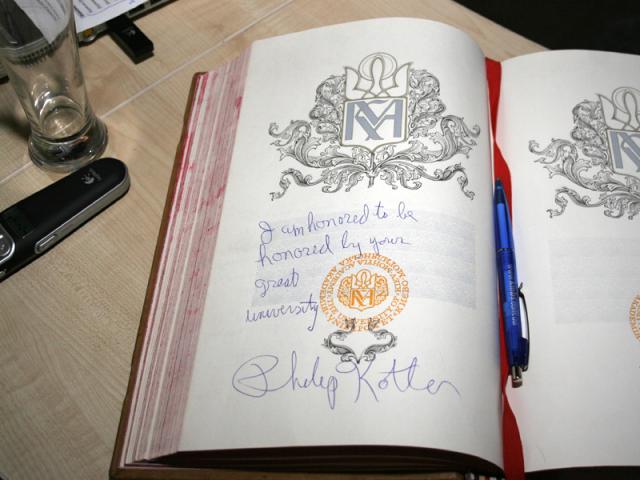 I am honored to be
honored by your
great
university
Philip Kotler